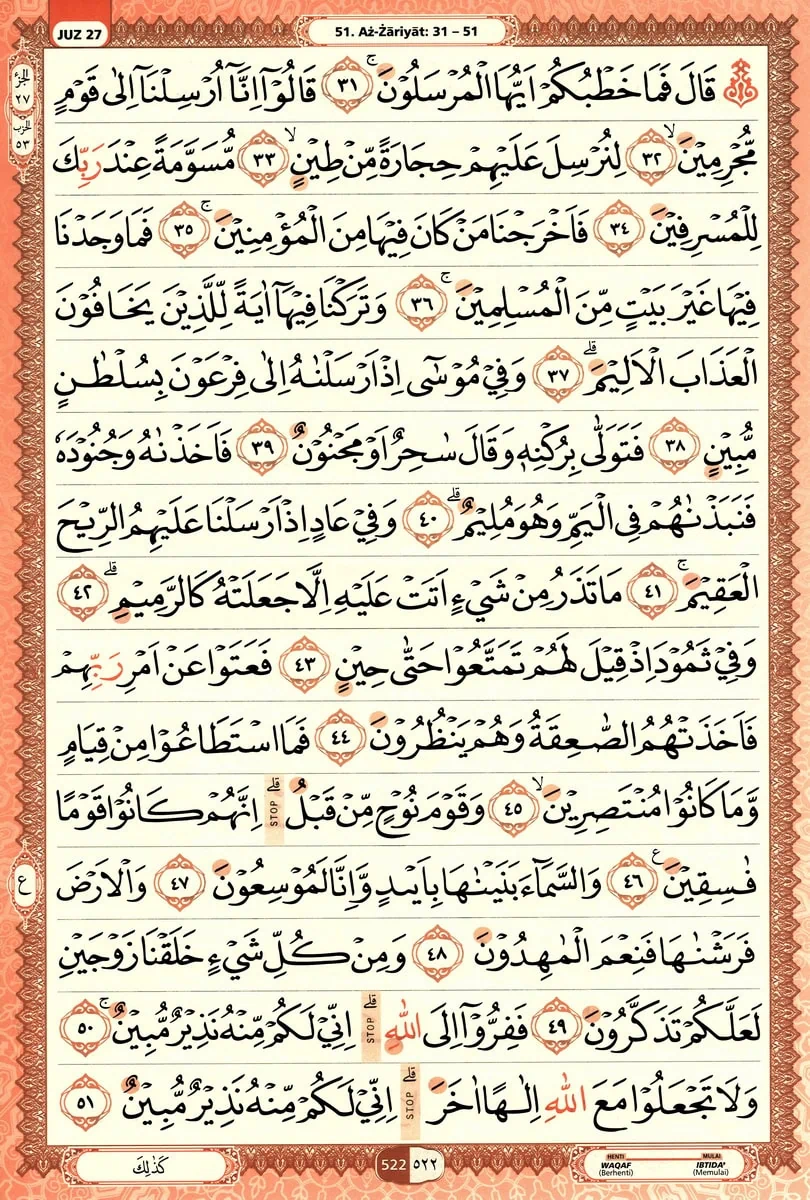 JUZ 27
51. Aż-Żāriyāt: 31 – 51
الجزء ٢٧
الحزب ٥٣
قَالَ فَمَا خَطْبُكُمْ اَيُّهَا الْمُرْسَلُوْنَۚ ٣١ قَالُوْٓا اِنَّآ اُرْسِلْنَآ اِلٰى قَوْمٍ
مُّجْرِمِيْنَۙ ٣٢ لِنُرْسِلَ عَلَيْهِمْ حِجَارَةً مِّنْ طِيْنٍۙ ٣٣ مُّسَوَّمَةً عِنْدَ رَبِّكَ
لِلْمُسْرِفِيْنَ ٣٤ فَاَخْرَجْنَا مَنْ كَانَ فِيْهَا مِنَ الْمُؤْمِنِيْنَۚ ٣٥ فَمَا وَجَدْنَا
فِيْهَا غَيْرَ بَيْتٍ مِّنَ الْمُسْلِمِيْنَۚ ٣٦ وَتَرَكْنَا فِيْهَآ اٰيَةً لِّلَّذِيْنَ يَخَافُوْنَ
الْعَذَابَ الْاَلِيْمَۗ ٣٧ وَفِيْ مُوْسٰٓى اِذْ اَرْسَلْنٰهُ اِلٰى فِرْعَوْنَ بِسُلْطٰنٍ
مُّبِيْنٍ ٣٨ فَتَوَلّٰى بِرُكْنِهٖ وَقَالَ سٰحِرٌ اَوْ مَجْنُوْنٌ ٣٩ فَاَخَذْنٰهُ وَجُنُوْدَهٗ
فَنَبَذْنٰهُمْ فِى الْيَمِّ وَهُوَ مُلِيْمٌۗ ٤٠ وَفِيْ عَادٍ اِذْ اَرْسَلْنَا عَلَيْهِمُ الرِّيْحَ
الْعَقِيْمَۚ ٤١ مَا تَذَرُ مِنْ شَيْءٍ اَتَتْ عَلَيْهِ اِلَّا جَعَلَتْهُ كَالرَّمِيْمِۗ ٤٢
وَفِيْ ثَمُوْدَ اِذْ قِيْلَ لَهُمْ تَمَتَّعُوْا حَتّٰى حِيْنٍ ٤٣ فَعَتَوْا عَنْ اَمْرِ رَبِّهِمْ
فَاَخَذَتْهُمُ الصّٰعِقَةُ وَهُمْ يَنْظُرُوْنَ ٤٤ فَمَا اسْتَطَاعُوْا مِنْ قِيَامٍ
وَّمَا كَانُوْا مُنْتَصِرِيْنَۙ ٤٥ وَقَوْمَ نُوْحٍ مِّنْ قَبْلُۗ STOP اِنَّهُمْ كَانُوْا قَوْمًا
فٰسِقِيْنَ ࣖ ٤٦ وَالسَّمَاۤءَ بَنَيْنٰهَا بِاَيْىدٍ وَّاِنَّا لَمُوْسِعُوْنَ ٤٧ وَالْاَرْضَ
ع
فَرَشْنٰهَا فَنِعْمَ الْمٰهِدُوْنَ ٤٨ وَمِنْ كُلِّ شَيْءٍ خَلَقْنَا زَوْجَيْنِ
لَعَلَّكُمْ تَذَكَّرُوْنَ ٤٩ فَفِرُّوْٓا اِلَى اللّٰهِۗ STOP اِنِّيْ لَكُمْ مِّنْهُ نَذِيْرٌ مُّبِيْنٌۚ ٥٠
وَلَا تَجْعَلُوْا مَعَ اللّٰهِ اِلٰهًا اٰخَرَۗ STOP اِنِّيْ لَكُمْ مِّنْهُ نَذِيْرٌ مُّبِيْنٌ ٥١
كَذٰلِكَ
522 ٥٢٢
HENTI WAQAF (Berhenti)
MULAI IBTIDA' (Memulai)